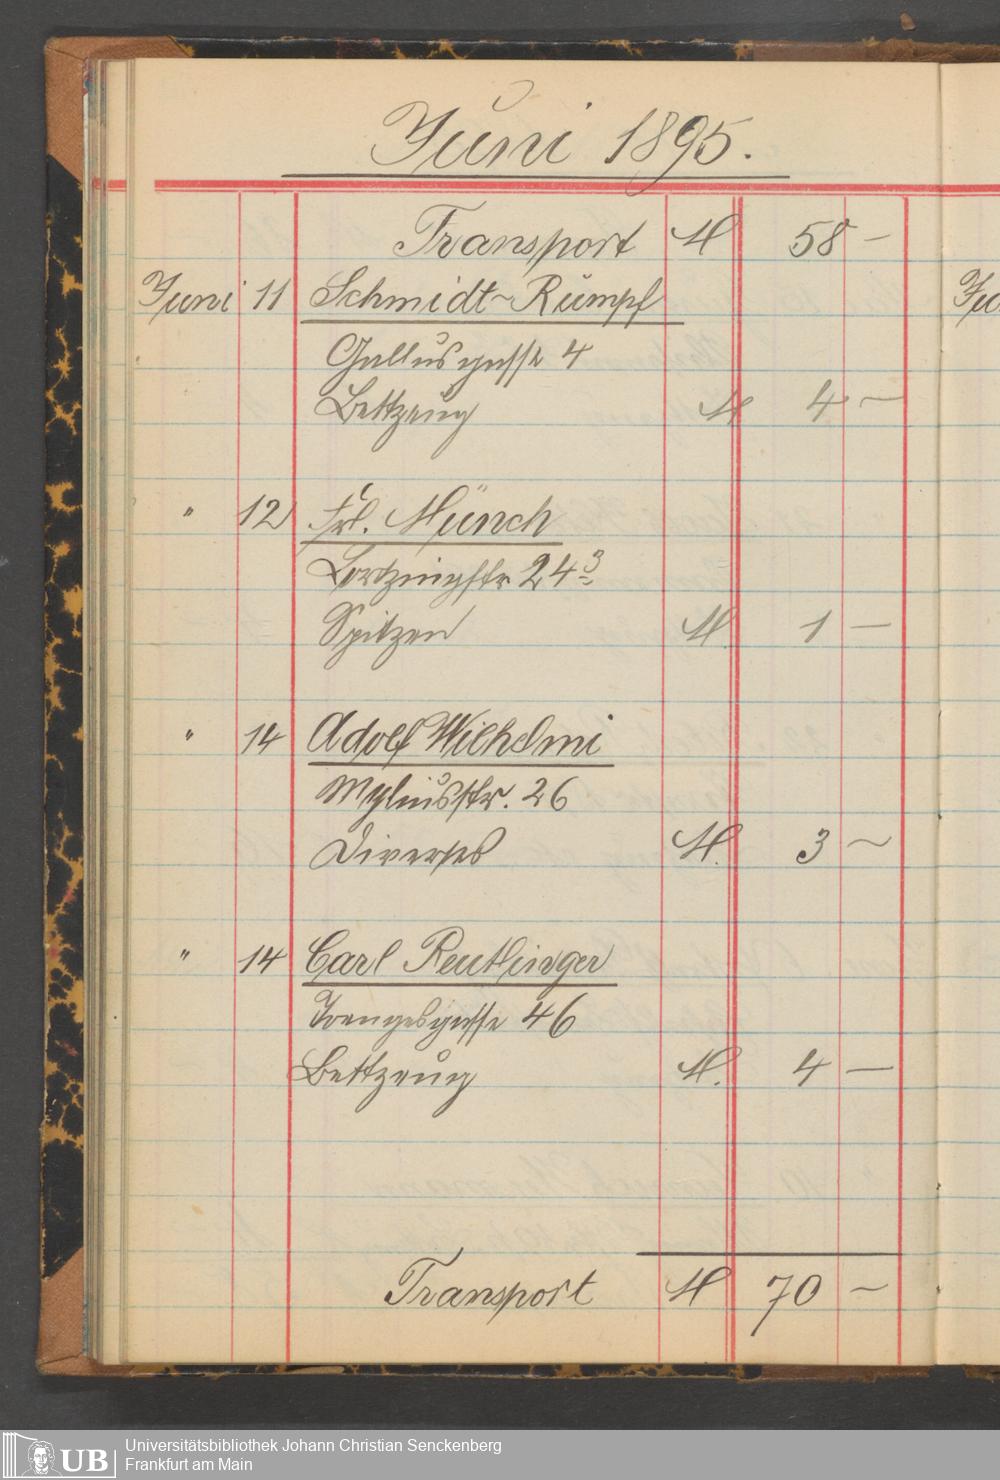 Juni 1895.
Transport M 58 –
Juni 11 Schmidt-Rumpf
Gallusgasse 4
Bettzeug M 4 –
" 12 Frl. Münch
Lortzingstr 24 3
Spitzen M 1 –
" 14 Adolf Wilhelmi
Myliusstr. 26
Diverses M. 3 –
" 14 Carl Reutlinger
Toengesgasse 46
Bettzeug M. 4 –
Transport M 70 –
UB
Universitätsbibliothek Johann Christian Senckenberg
Frankfurt am Main